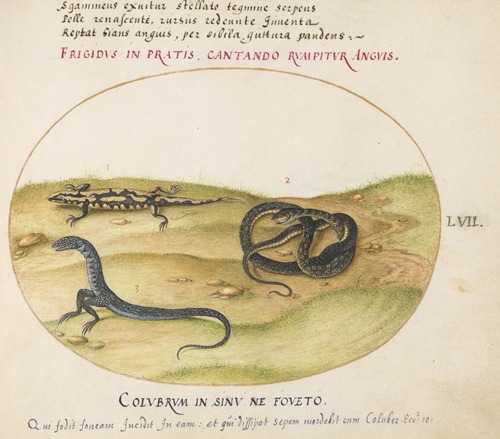 Sgammeus exuitur stellato tegmine serpens
Pelle renascente, rursus redeunte Iuuenta
Reptat hians anguis, per sibila guttura pandens
FRIGIDVS IN PRATIS, CANTANDO RVMPITVR ANGVIS.
1
2
LVII.
3
COLVBRVM IN SINV NE FOVETO.
Qui fodit foueam Incidit In eam: et qui dissipat sepem mordebit eum Coluber. Ecc 10